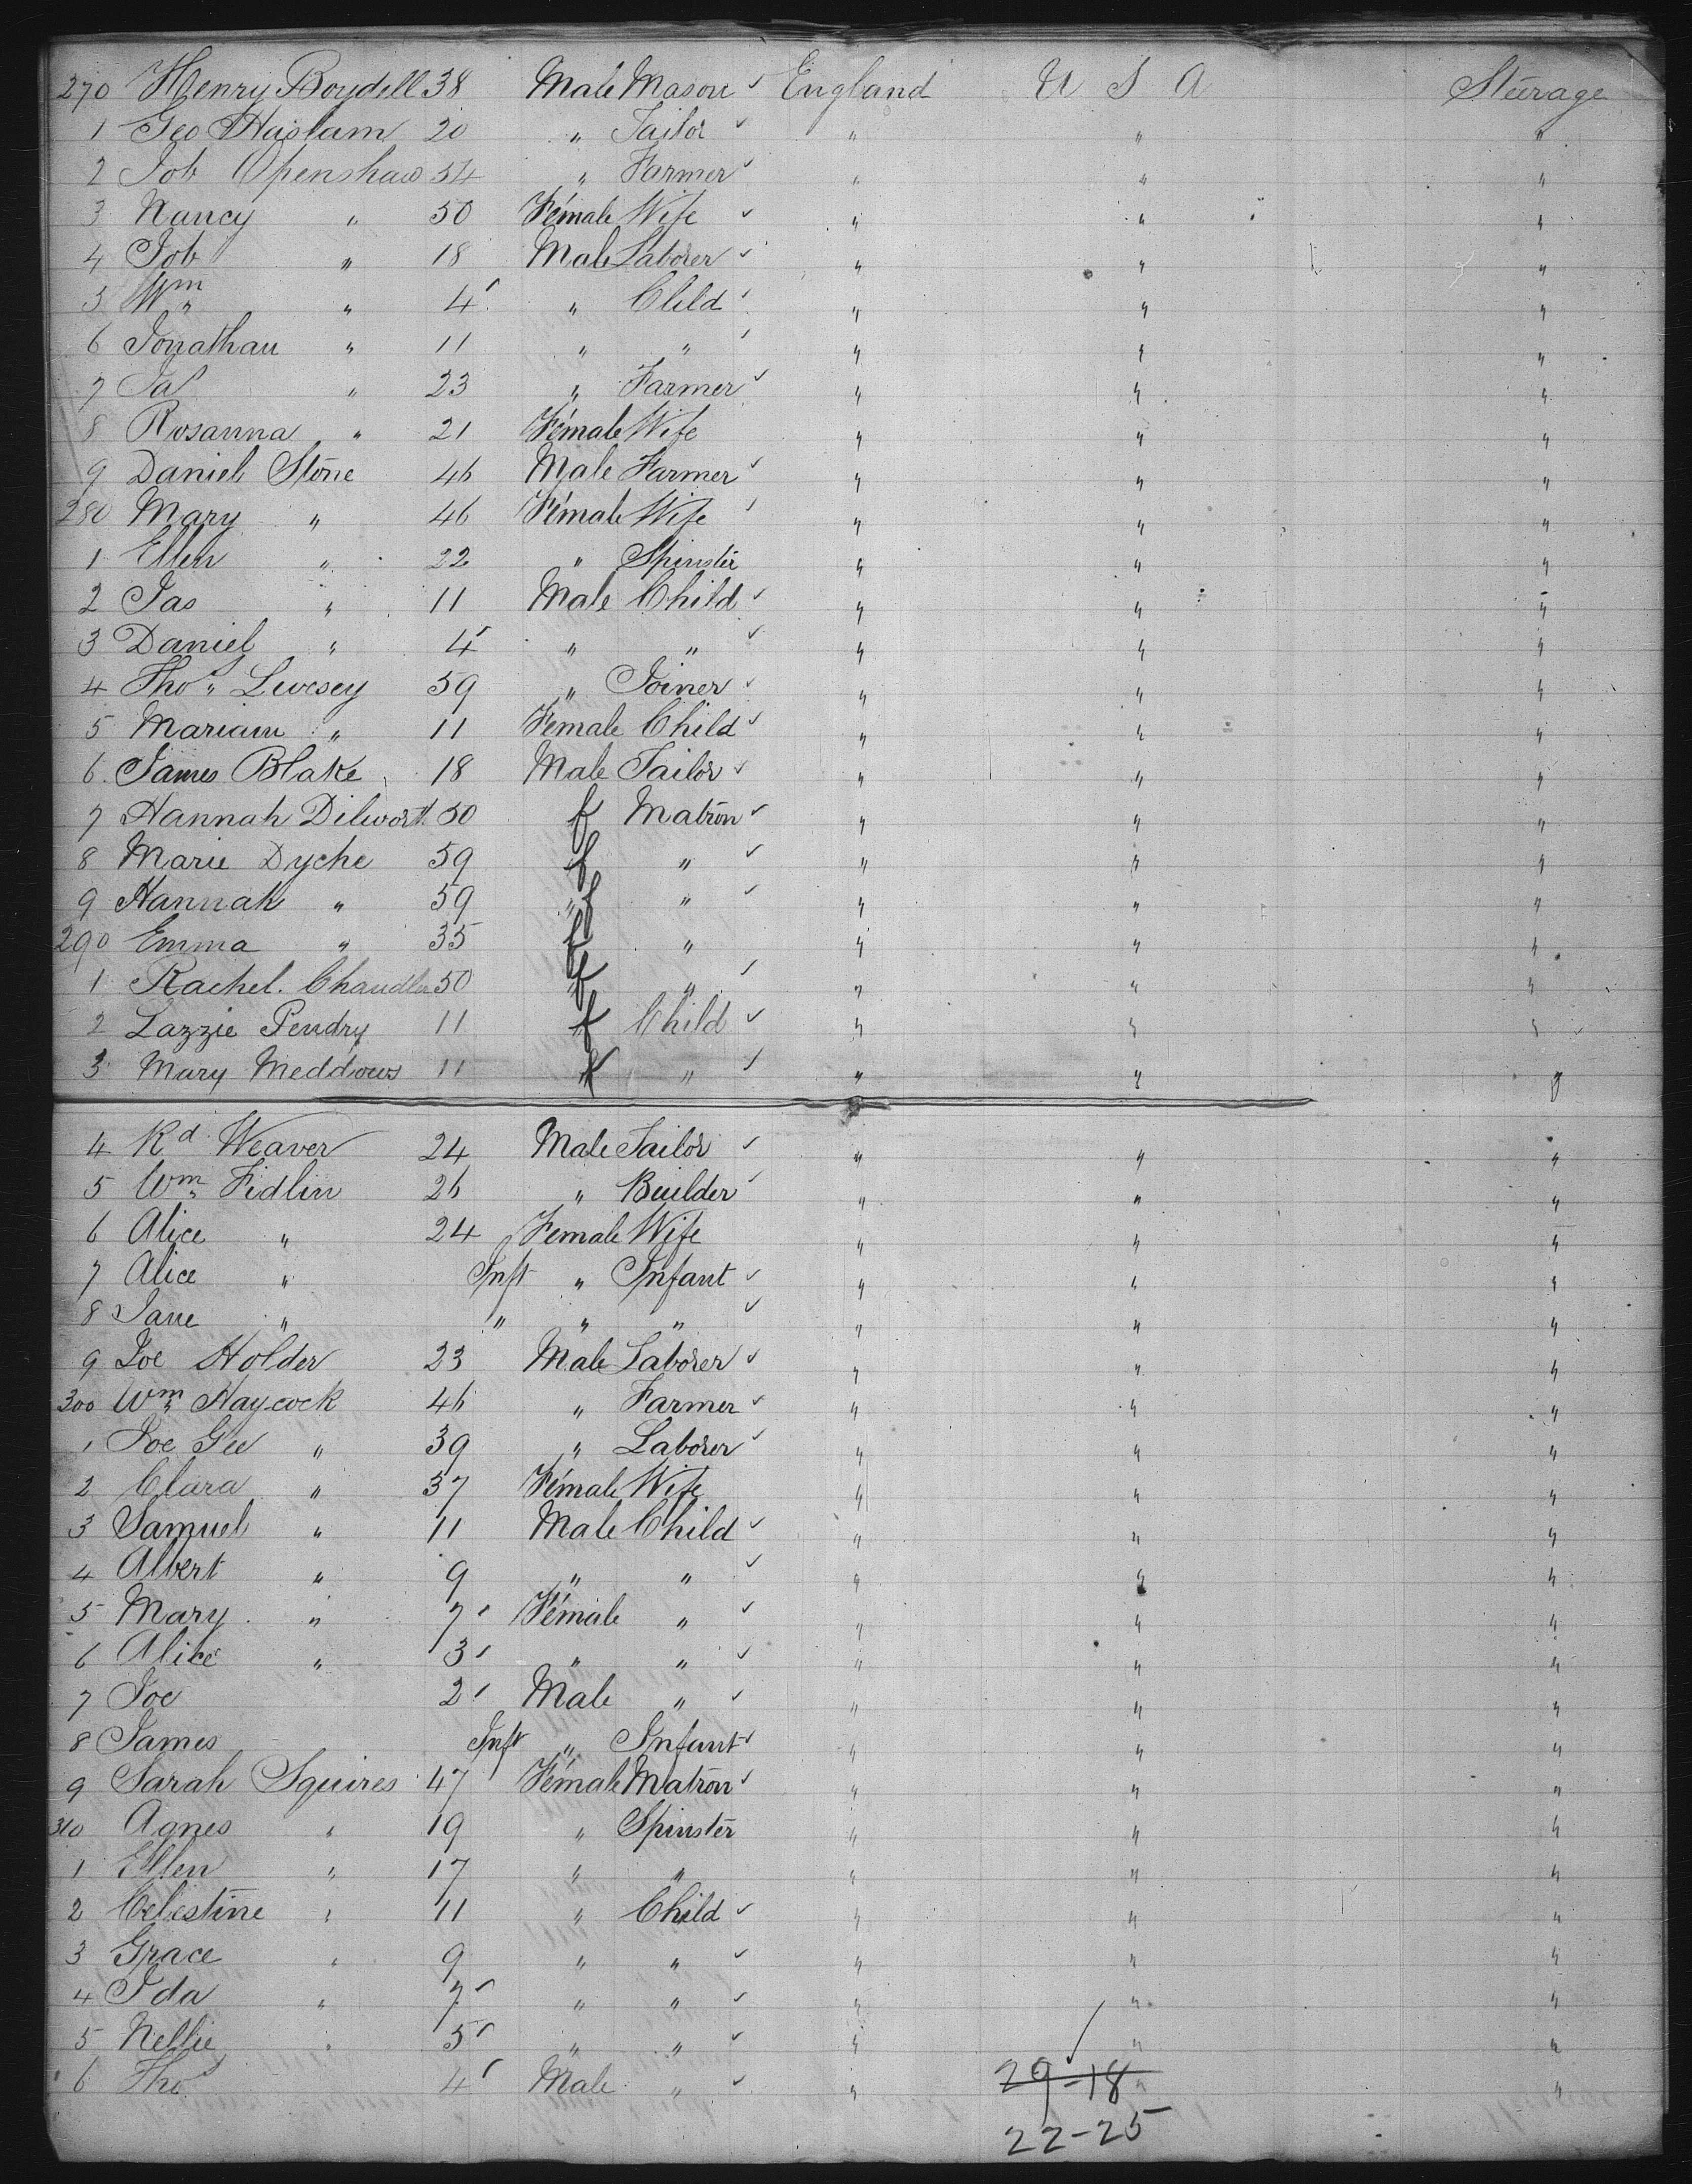 270 Henry Boydell 38 Male Mason ✓ England U S A Steerage
1 Geo Haslam 20 " Tailor ✓ " " "
2 Job Openshaw 54 " Farmer ✓ " " "
3 Nancy " 50 Female Wife ✓ " " "
4 Job " 18 Male Laborer ✓ " " "
5 Wm " 4 " Child ✓ " " "
6 Jonathan " 11 " " ✓ " " "
7 Jas " 23 " Farmer ✓ " " "
8 Rosanna " 21 Female Wife " " "
9 Daniel Stone 46 Male Farmer ✓ " " "
280 Mary " 46 Female Wife ✓ " " "
1 Ellen " 22 " Spinster " " "
2 Jas " 11 Male Child ✓ " " "
3 Daniel " 4 " " ✓ " " "
4 Thos Livesey 59 " Joiner ✓ " " "
5 Mariam " 11 Female Child ✓ " " "
6 James Blake 18 Male Tailor ✓ " " "
7 Hannah Dilworth 50 f Matron ✓ " " "
8 Marie Dyche 59 f " ✓ " " "
9 Hannah " 59 f " ✓ " " "
290 Emma " 35 f " " " "
1 Rachel Chandler 50 f " ✓ " " "
2 Lazzie Pendry 11 f Child ✓ " " "
3 Mary Meddows 11 f " ✓ " " "
4 Rd Weaver 24 Male Tailor ✓ " " "
5 Wm Fidlin 26 " Builder ✓ " " "
6 Alice " 24 Female Wife " " "
7 Alice " Inft " Infant ✓ " " "
8 Jane " " " " ✓ " " "
9 Joe Holder 23 Male Laborer ✓ " " "
300 Wm Haycock 46 " Farmer ✓ " " "
1 Joe Gee " 39 " Laborer ✓ " " "
2 Clara " 37 Female Wife " " "
3 Samuel " 11 Male Child ✓ " " "
4 Albert " 9 " " ✓ " " "
5 Mary " 7 Female " ✓ " " "
6 Alice " 3 " " ✓ " " "
7 Joe 2 Male " ✓ " " "
8 James Inft " Infant ✓ " " "
9 Sarah Squires 47 Female Matron ✓ " " "
310 Agnes " 19 " Spinster " " "
1 Ellen " 17 " " " " "
2 Celestine " 11 " Child ✓ " " "
3 Grace " 9 " " ✓ " " "
4 Ida " 7 " " ✓ " " "
5 Nellie " 5 " " ✓ " " "
6 Thos 4 Male " ✓ " " "
29-18
22-25